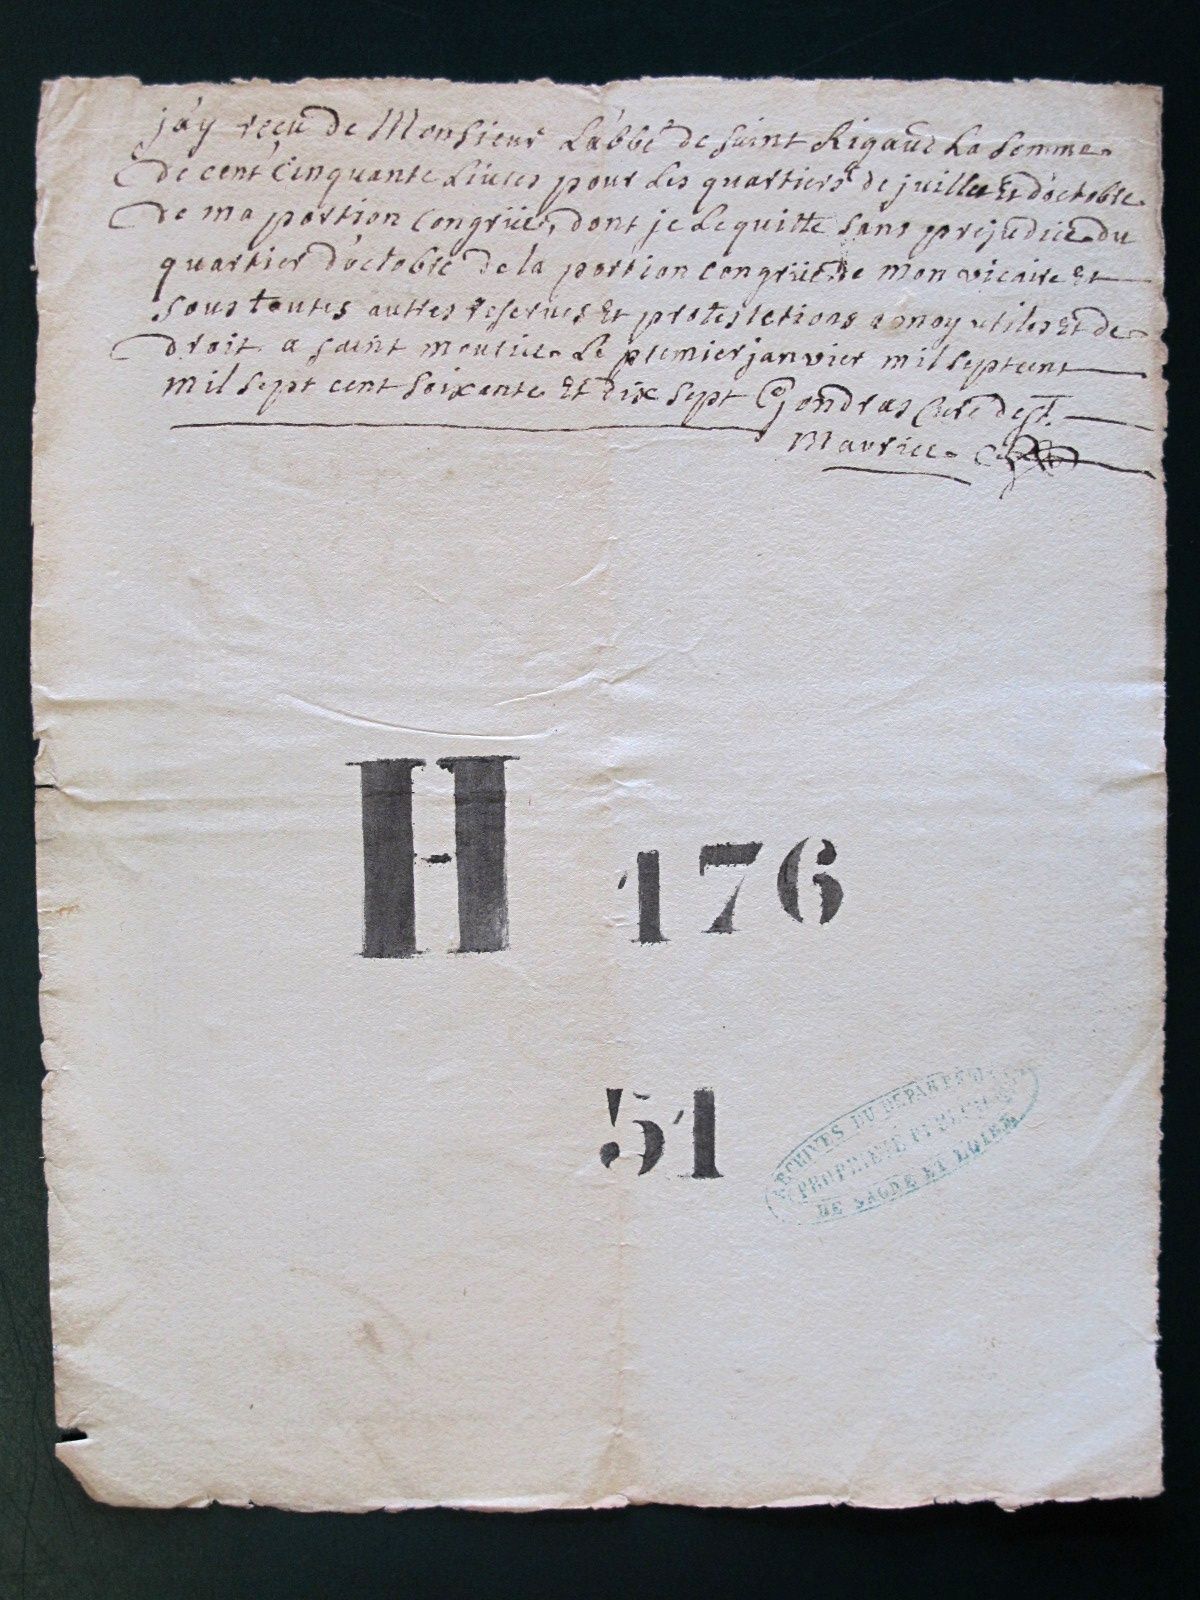 j'ay reçu de Monsieur L'abbé de saint Rigaud La somme
de cent Cinquante Livres pour Les quartiers de juillet Et d'octobre
de ma portion congrüe, dont je Le quitte sans prejudice du
quartier d'octobre de la portion congrüe de mon vicaire Et
sous toutes autres reserves Et protestations a moy utiles Et de
droit a saint meurice Le premier janvier mil sept cent
mil sept cent soixante Et dix sept Gondras Curé de St.
Maurice
H 176
51
ARCHIVES DU DÉPARTEMENT
PROPRIÉTÉ PUBLIQUE
DE SAONE ET LOIRE